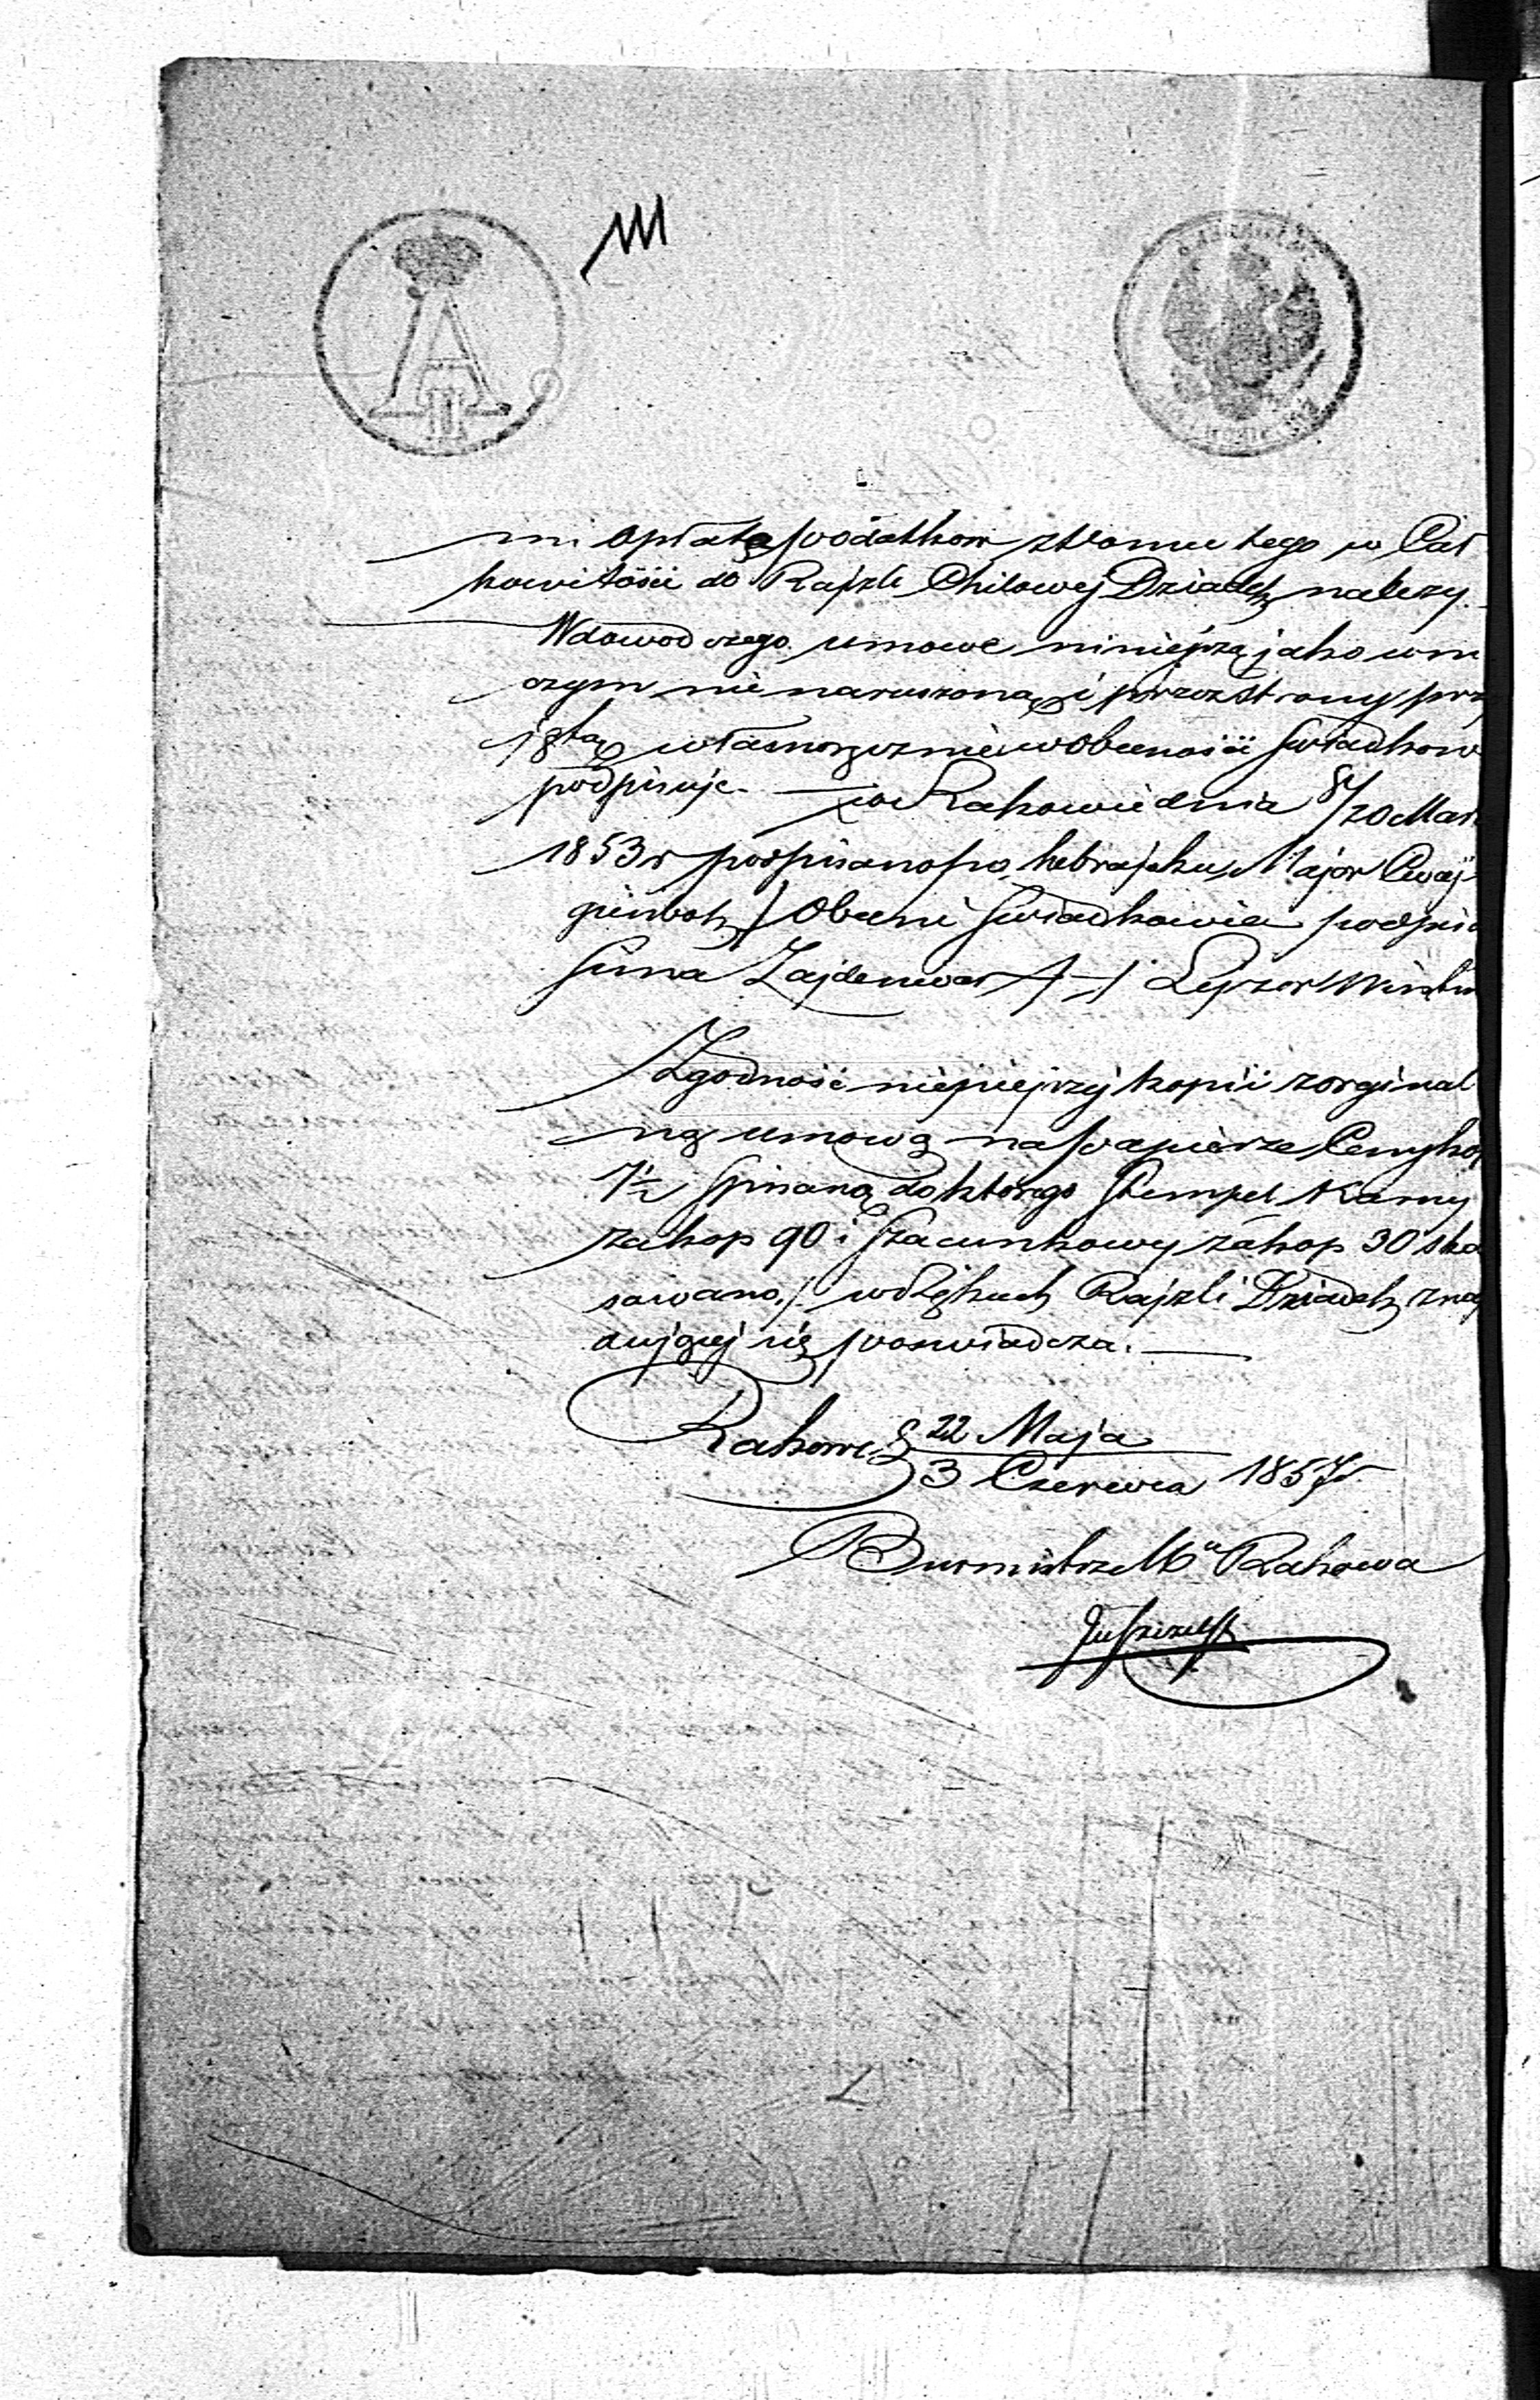 A
II
mi opłatę podatków zdomu tego w Cał
kowitości do Rajzli Chilowej Dziadek należy.
Wdowod czego umowe niniejszą jako wni
czym nie naruszoną i przez strony przy
jętą własnoręcznie wobecności świadkow
podpisuje. — w Rakowie dnia 8/20 Mar
1853 r podpisano po hebrajsku Major Cwaj
gienbok / Obecni świadkowie podpis
Zajdenwar Lejzor
Zgodność niniejszej kopii zorginal
ną umową na papierze Ceny kop
7½ spisaną do którego stempel Karny
za kop 90 i szacunkowy za kop 30 ska
sowano / wRękach Rajzli Dziadek znaj
dującej się poswiadcza. —
Rakow d 22 Maja
3 Czerwca 1857 r
Burmistrz Mta Rakowa